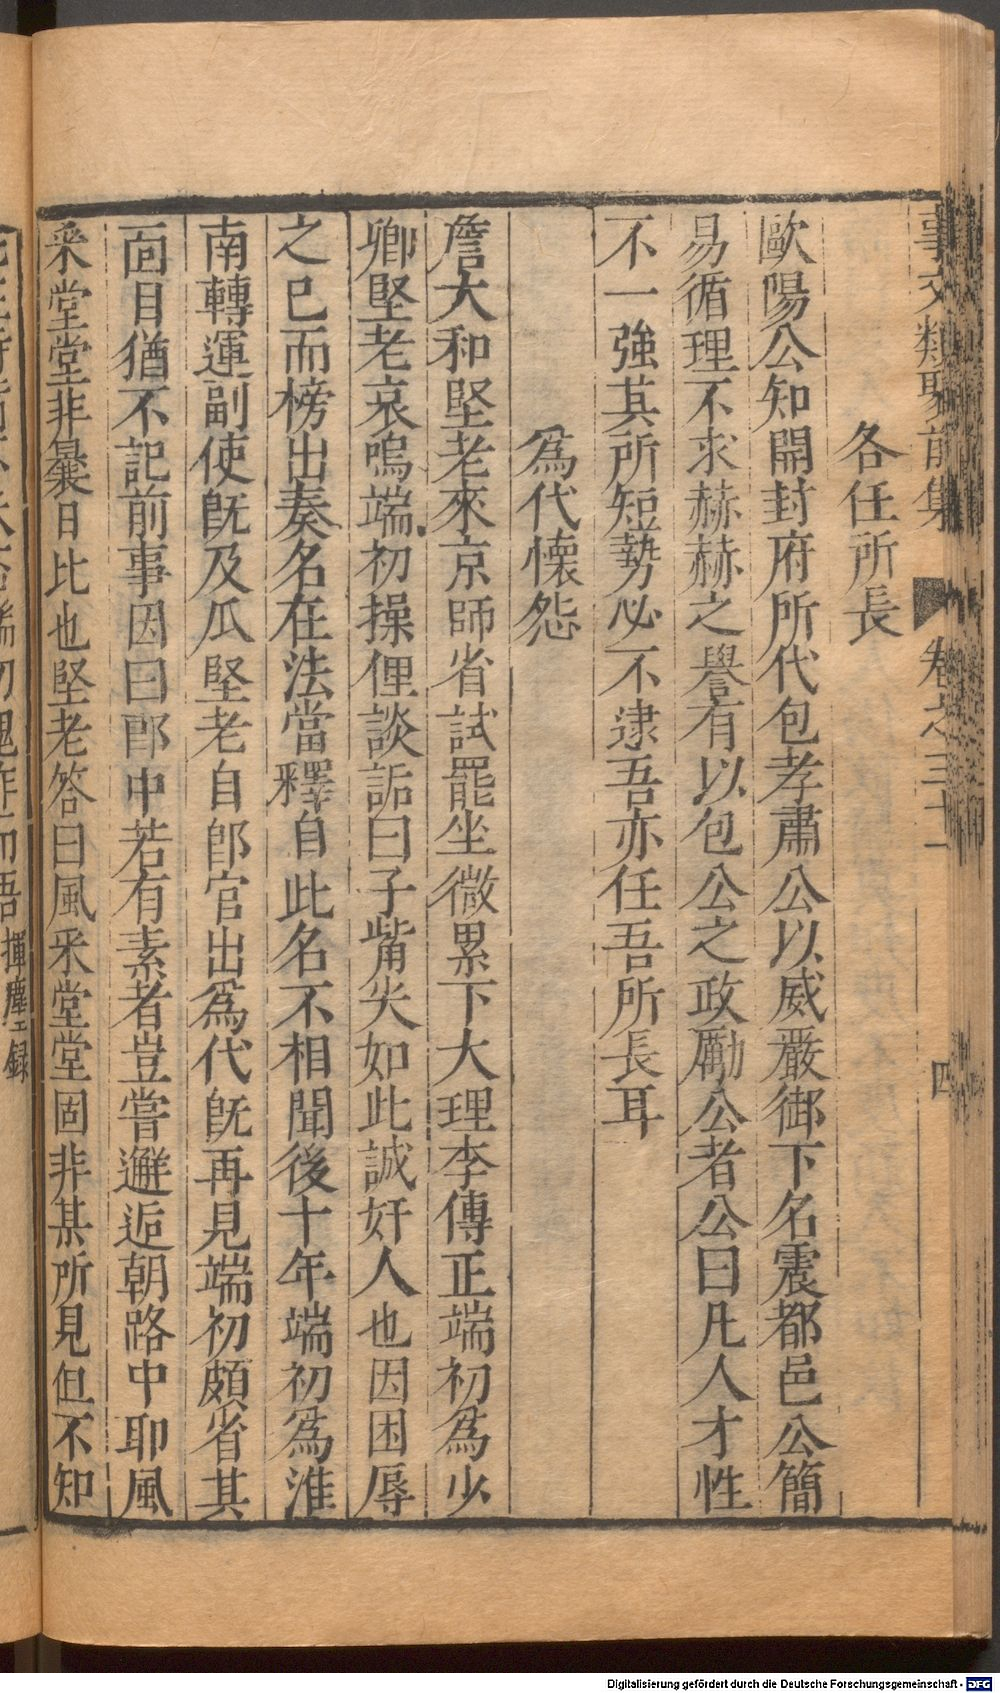 事文類聚前集 卷之三十一 四
各任所長
歐陽公知開封府所代包孝肅公以威嚴御下名震都邑公簡
易循理不求赫赫之譽有以包公之政勵公者公曰凡人才性
不一強其所短勢必不逮吾亦任吾所長耳
為代懷怨
詹大和堅老來京師省試罷坐微累下大理李傳正端初為少
卿堅老哀鳴端初操俚談詬曰子觜尖如此誠奸人也因困辱
之已而榜出奏名在法當釋自此名不相聞後十年端初為淮
南轉運副使既及瓜堅老自郎官出為代既再見端初頗省其
面目猶不記前事因曰郎中若有素者豈嘗邂逅朝路中耶風
采堂堂非曩日比也堅老答曰風采堂堂固非某所見但不知
端初愧怍而語揮麈錄
Digitalisierung gefördert durch die Deutsche Forschungsgemeinschaft - DFG